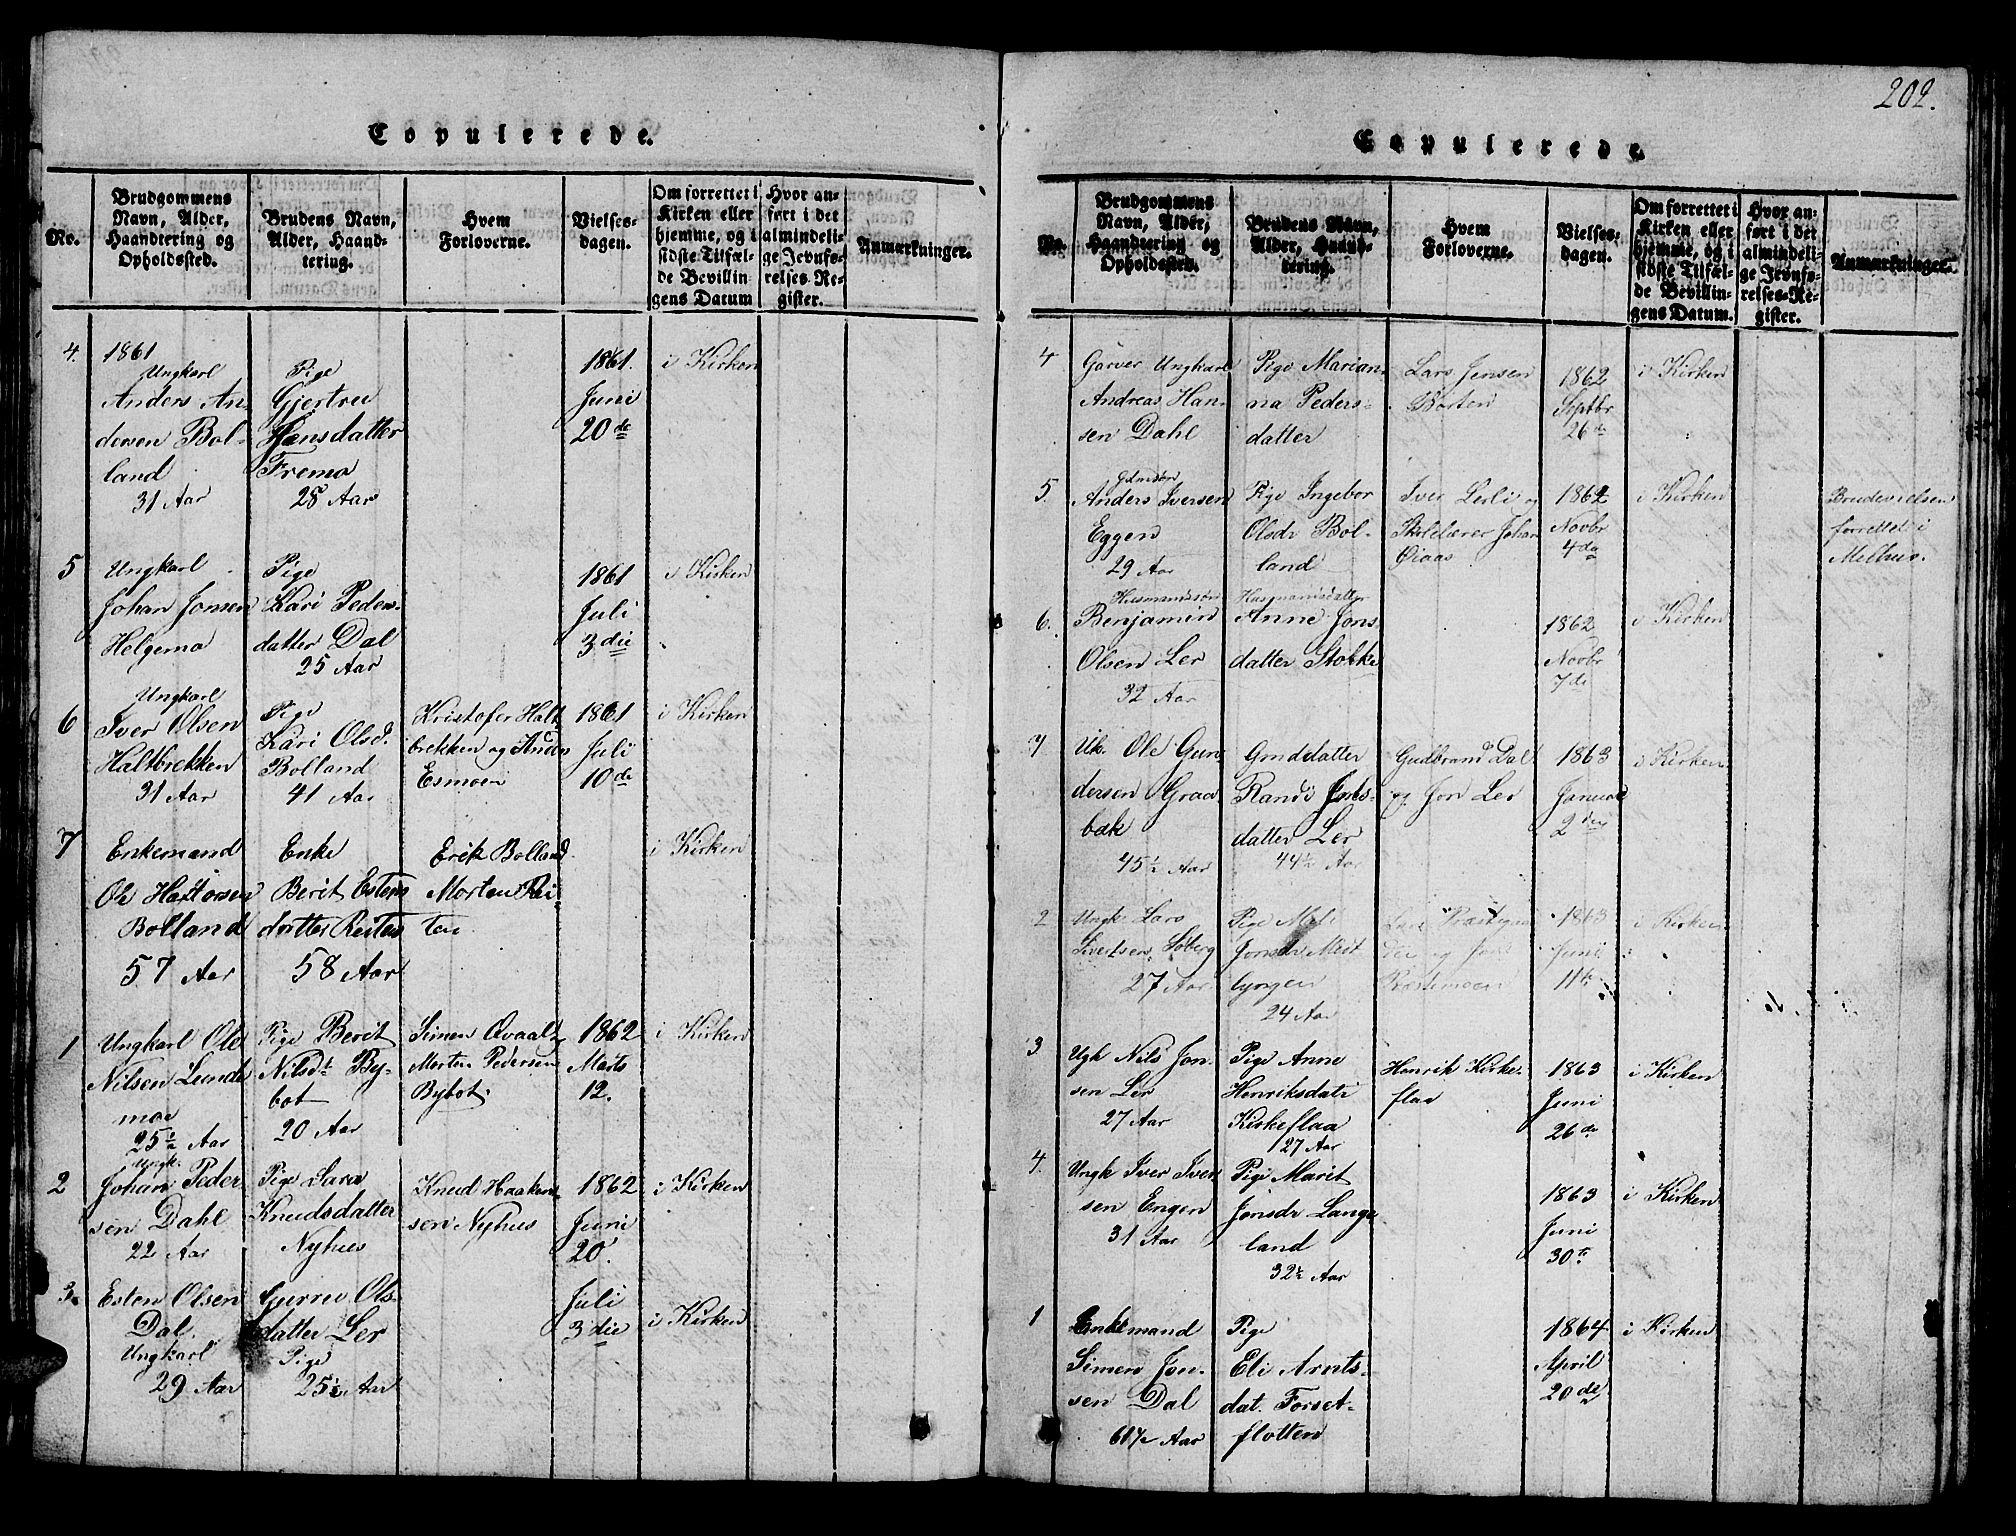 202.
Copulerede.
No.
Brudgommens
Navn, Alder,
Haandtering og
Opholdssted.
Brudens Navn,
Alder, Haand-
tering.
Hvem
Forloverne.
Vielses-
dagen.
Om forrettet i
Kirken eller
hjemme, og i
sidste Tilfæl-
de Bevillin-
gens Datum
Hvor an-
ført i det
almindeli-
ge Jevnfø-
relses-Re-
gister.
Anmærkninger.
4. 1861
Ungkarl
Anders An-
dersen Bol-
land
31 Aar
Pige
Gjertru
Hansdatter
Fremo
28 Aar
1861.
Juni
20de
i Kirken
5
Ungkarl
Johan Jonsen
Helgemo
Pige
Kari Peders-
datter Dal
25 Aar
1861
Juli
3die
i Kirken
6
Ungkarl
Iver Olsen
Haltbrekken
31 Aar
Pige
Kari Olsd.
Bolland
41 Aar
Kristofer Halt
brekken og Anders
Esmoen
1861
Juli
10de
i Kirken
7
Enkemand
Ole
Bolland
57 Aar
Enke
Berit Estens
datter Reiten
58 Aar
Erik Bolland
Morten Rei
ten
i Kirken
1
Ungkarl Ole
Nilsen Lunde
moe
25½ Aar
Pige Berit
Nilsdt By-
bot
20 Aar
Simen Qvaal
Morten Pedersen
Bybot
1862
Marts
12.
i Kirken
2
Ungk.
Johan Peder
sen Dahl
22 Aar
Pige Sara
Knudsdatter
Nyhus
Knud Haaken
sen Nyhus
1862
Juni
20.
i Kirken
3.
Esten Olsen
Dal.
Ungkarl
29 Aar
Gurru Ols-
datter Ler
Pige
25½ Aar
Juli
3die
i Kirken
Copulerede.
No.
Brudgommens
Navn, Alder,
Haandtering og
Opholdssted.
Brudens Navn,
Alder, Haand-
tering.
Hvem
Forloverne.
Vielses-
dagen.
Om forrettet i
Kirken eller
hjemme, og i
sidste Tilfæl-
de Bevillin-
gens Datum.
Hvor an-
ført i det
almindeli-
ge Jevnfø-
relses-Re-
gister.
Anmærkninger.
4
Garver Ungkarl
Andreas Han-
sen Dahl
Pige Marian-
na Peders-
datter
Lars Jensen
Borten
1862
Septbr
26de
i Kirken
5.
Gdmsøn
Anders Iversen
Eggen
29 Aar
Pige Ingebor
Olsdr Bol-
land
Iver Lerli og
Skolelærer Johan
Øiaas
1862
Novbr
4de
i Kirken
Brudevielsen
forrettet i
Melhus.
6.
Husmandssøn
Benjamin
Olsen Ler
32 Aar
Husmandsdatter
Anne Jons-
datter Stokke
1862
Novbr
7de
i Kirken
Uk. Ole Gun
dersen Graa
bak
45½ Aar
Gmdsdatter
Randi Jons-
datter Ler
44½ Aar
Gudbrand Dal
og Jon Ler
1863
Januar
2den
i Kirken
2
Ungk. Lars
Sivertsen Søberg
27 Aar
Pige
Jonsdr
24 Aar
1863
Juni
11te
i Kirken
3
Ugk Nils Jon-
sen Ler
27 Aar
Pige Anne
Henriksdatr
Kirkeflaa
27 Aar
Henrik Kirke-
flaa
1863
Juni
26de
i Kirken
4.
Ungk Iver Iver
sen Engen
31 Aar
Pige Marit
Jonsdr Lange
land
32½ Aar
1863
Juni
30te
i Kirken
1
Enkemand
Simen Jon-
sen Dal
61½ Aar
Pige
Eli Arnts-
dat. Forset-
flotten
1864
April
20de
i Kirken